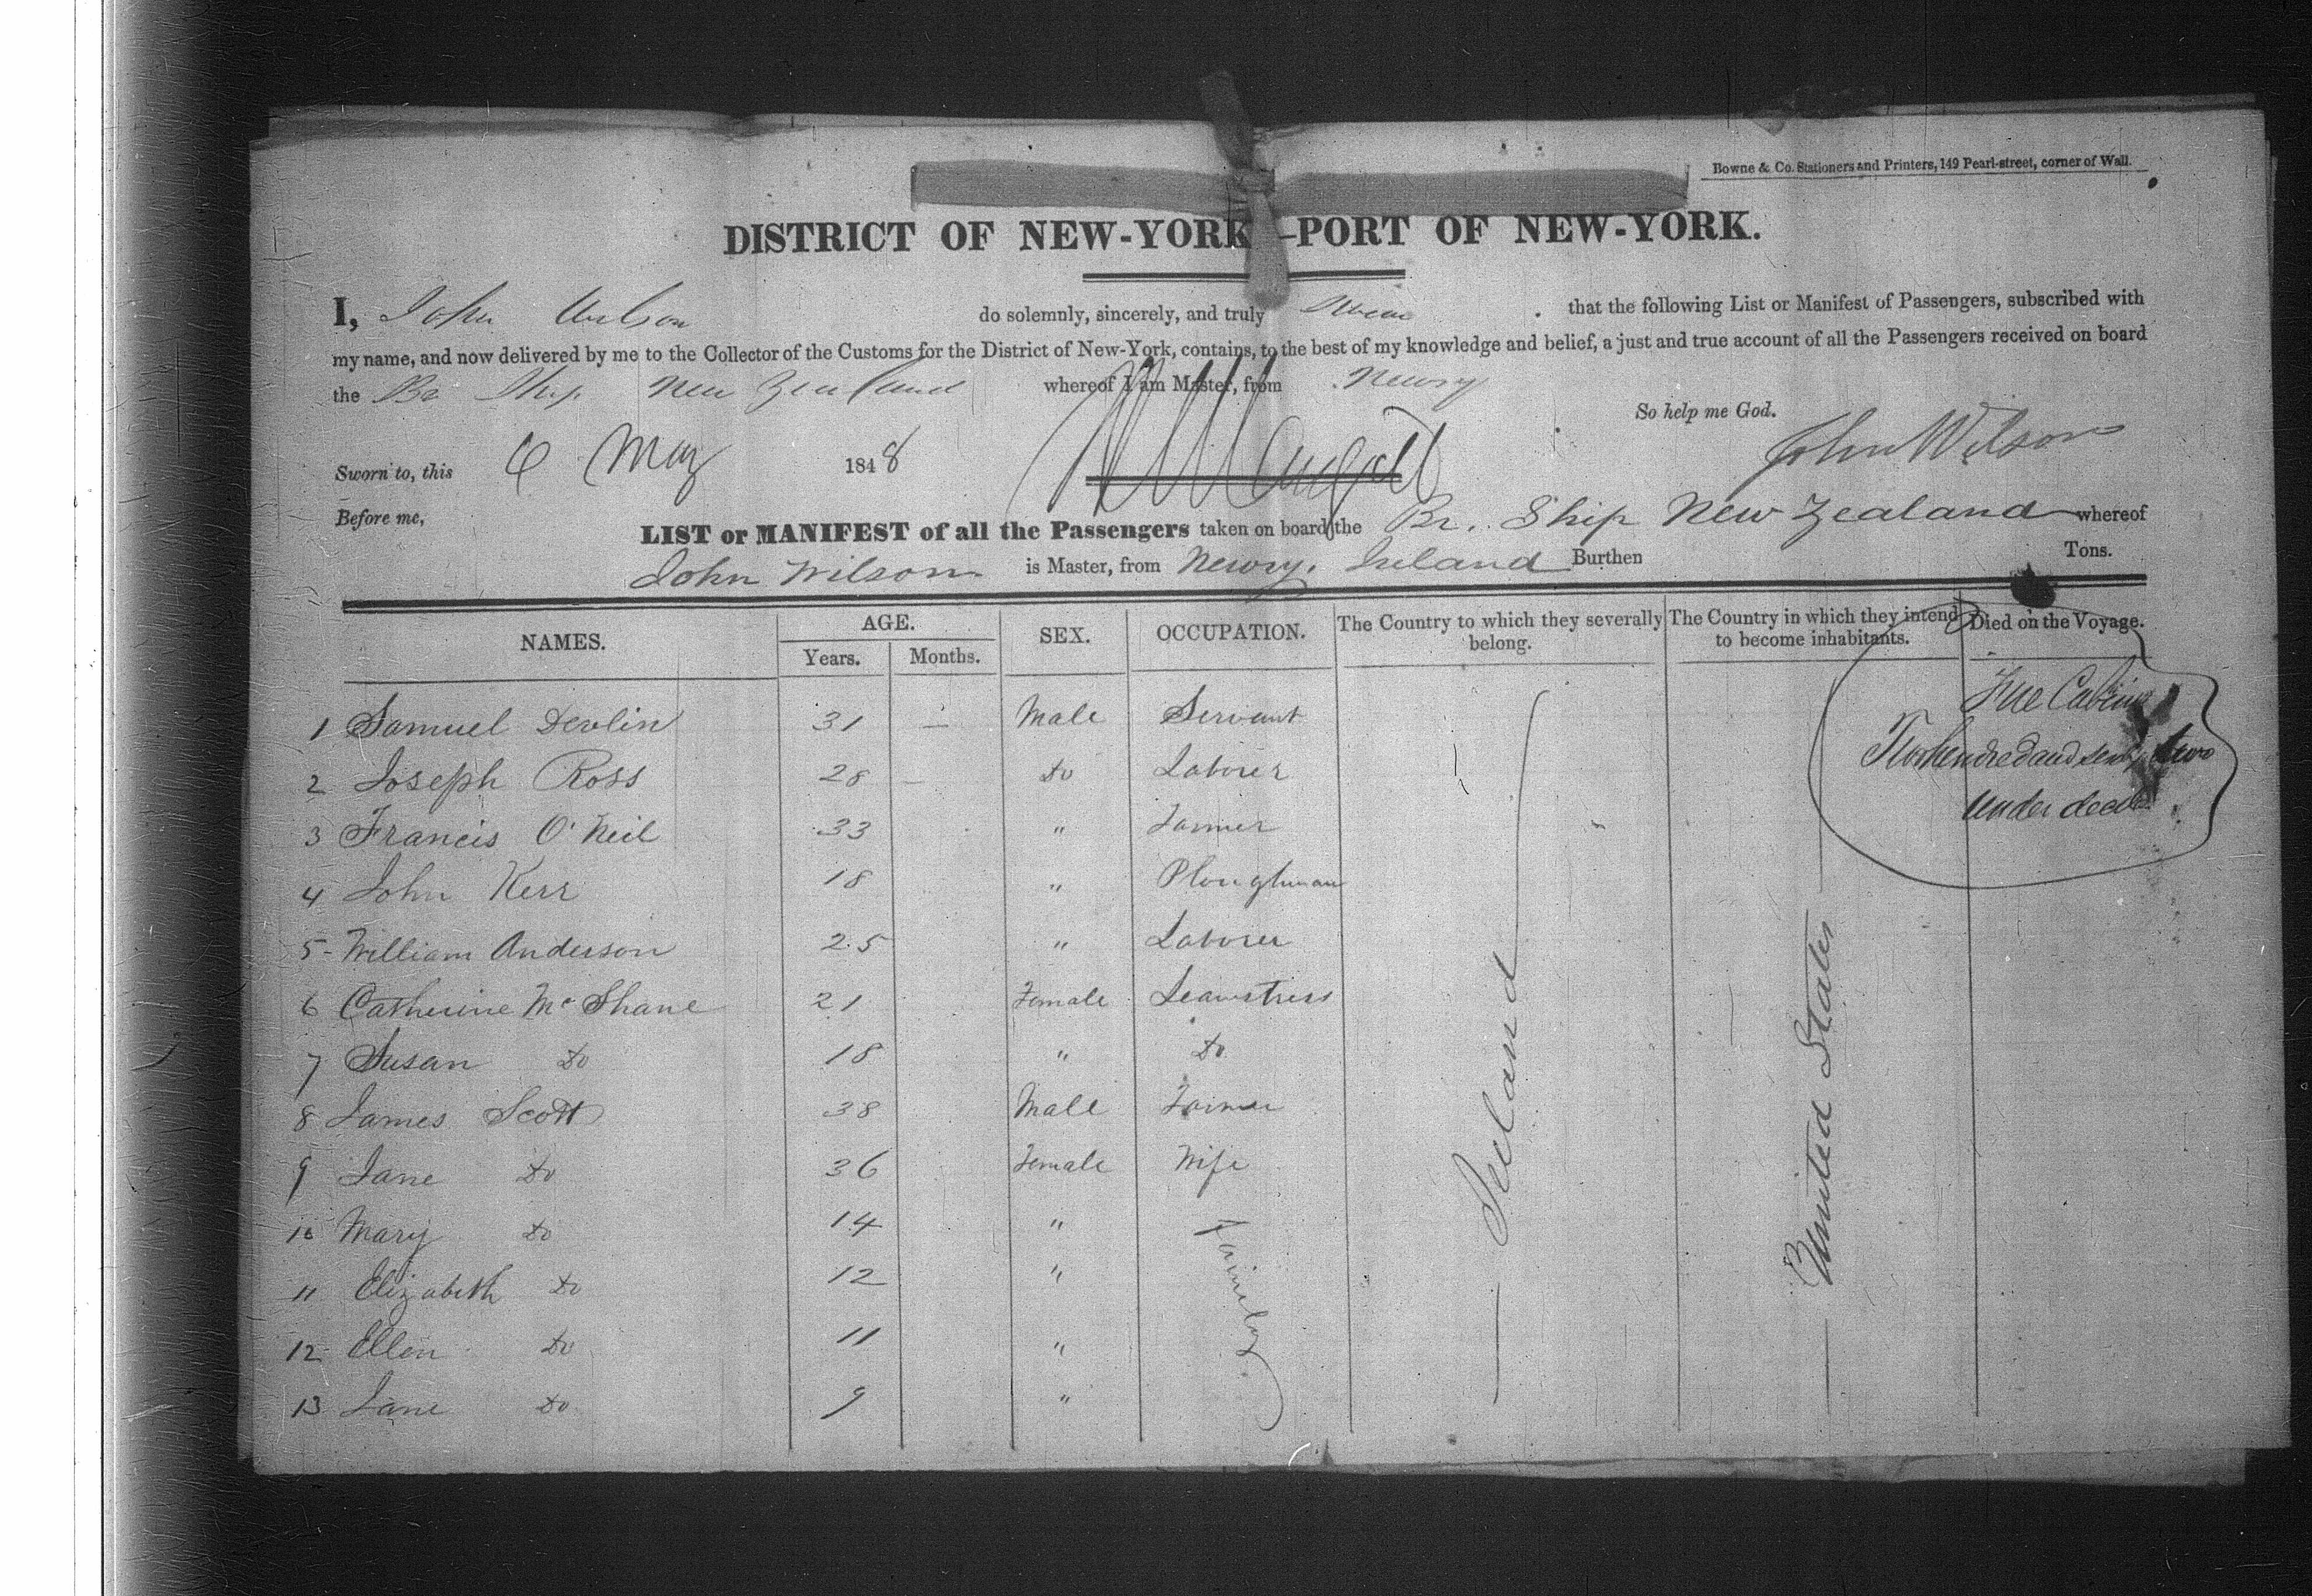 Bowne & Co. Stationers and Printers, 149 Pearl-street, corner of Wall.
DISTRICT OF NEW-YORK—PORT OF NEW-YORK.
I, John Wilson do solemnly, sincerely, and truly Swear that the following List or Manifest of Passengers, subscribed with
my name, and now delivered by me to the Collector of the Customs for the District of New-York, contains, to the best of my knowledge and belief, a just and true account of all the Passengers received on board
the Br Ship New Zealand whereof I am Master, from Newry
So help me God.
Sworn to, this 6 May 1848 John Wilson
Before me,
LIST or MANIFEST of all the Passengers taken on board the Br. Ship New Zealand whereof
John Wilson is Master, from Newry, Ireland Burthen Tons.
NAMES. AGE. SEX. OCCUPATION. The Country to which they severally belong. The Country in which they intend to become inhabitants. Died on the Voyage.
Years. Months.
1 Samuel Devlin 31 — Male Servant
2 Joseph Ross 28 — Do Laborer
3 Francis O'Neil 33 " Farmer
4 John Kerr 18 " Ploughman
5 William Anderson 25 " Laborer
6 Catherine McShane 21 Female Seamstress
7 Susan Do 18 " Do
8 James Scott 38 Male Farmer
9 Jane Do 36 Female Wife
10 Mary Do 14 "
11 Elizabeth Do 12 "
12 Ellen Do 11 "
13 Jane Do 9 "
Family
Ireland
United States
Cabin
Two hundred and two
under deck